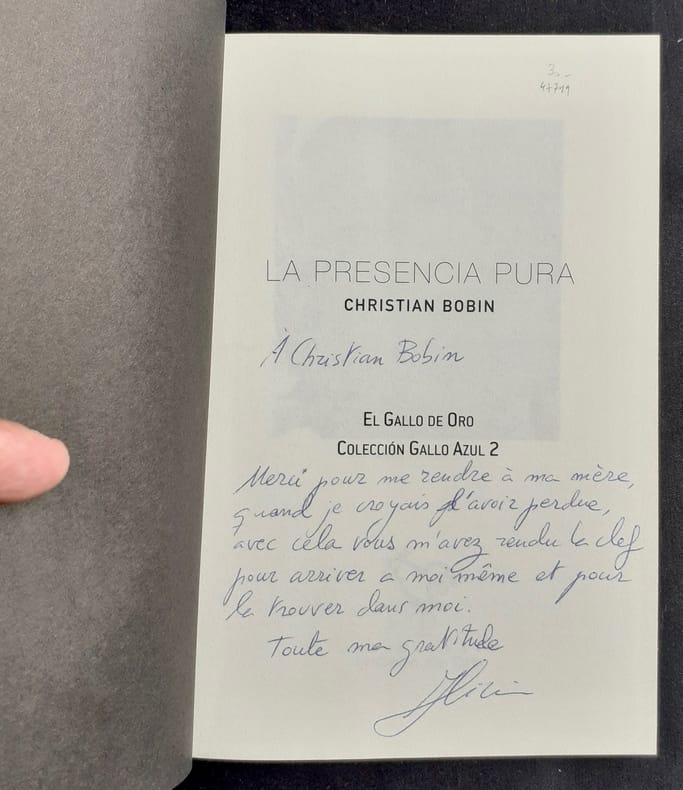 3.-
47719
LA PRESENCIA PURA
CHRISTIAN BOBIN
À Christian Bobin
EL GALLO DE ORO
COLECCIÓN GALLO AZUL 2
Merci pour me rendre à ma mère,
quand je croyais l'avoir perdue,
avec cela vous m'avez rendu la clef
pour arriver a moi même et pour
la trouver dans moi.
Toute ma gratitude